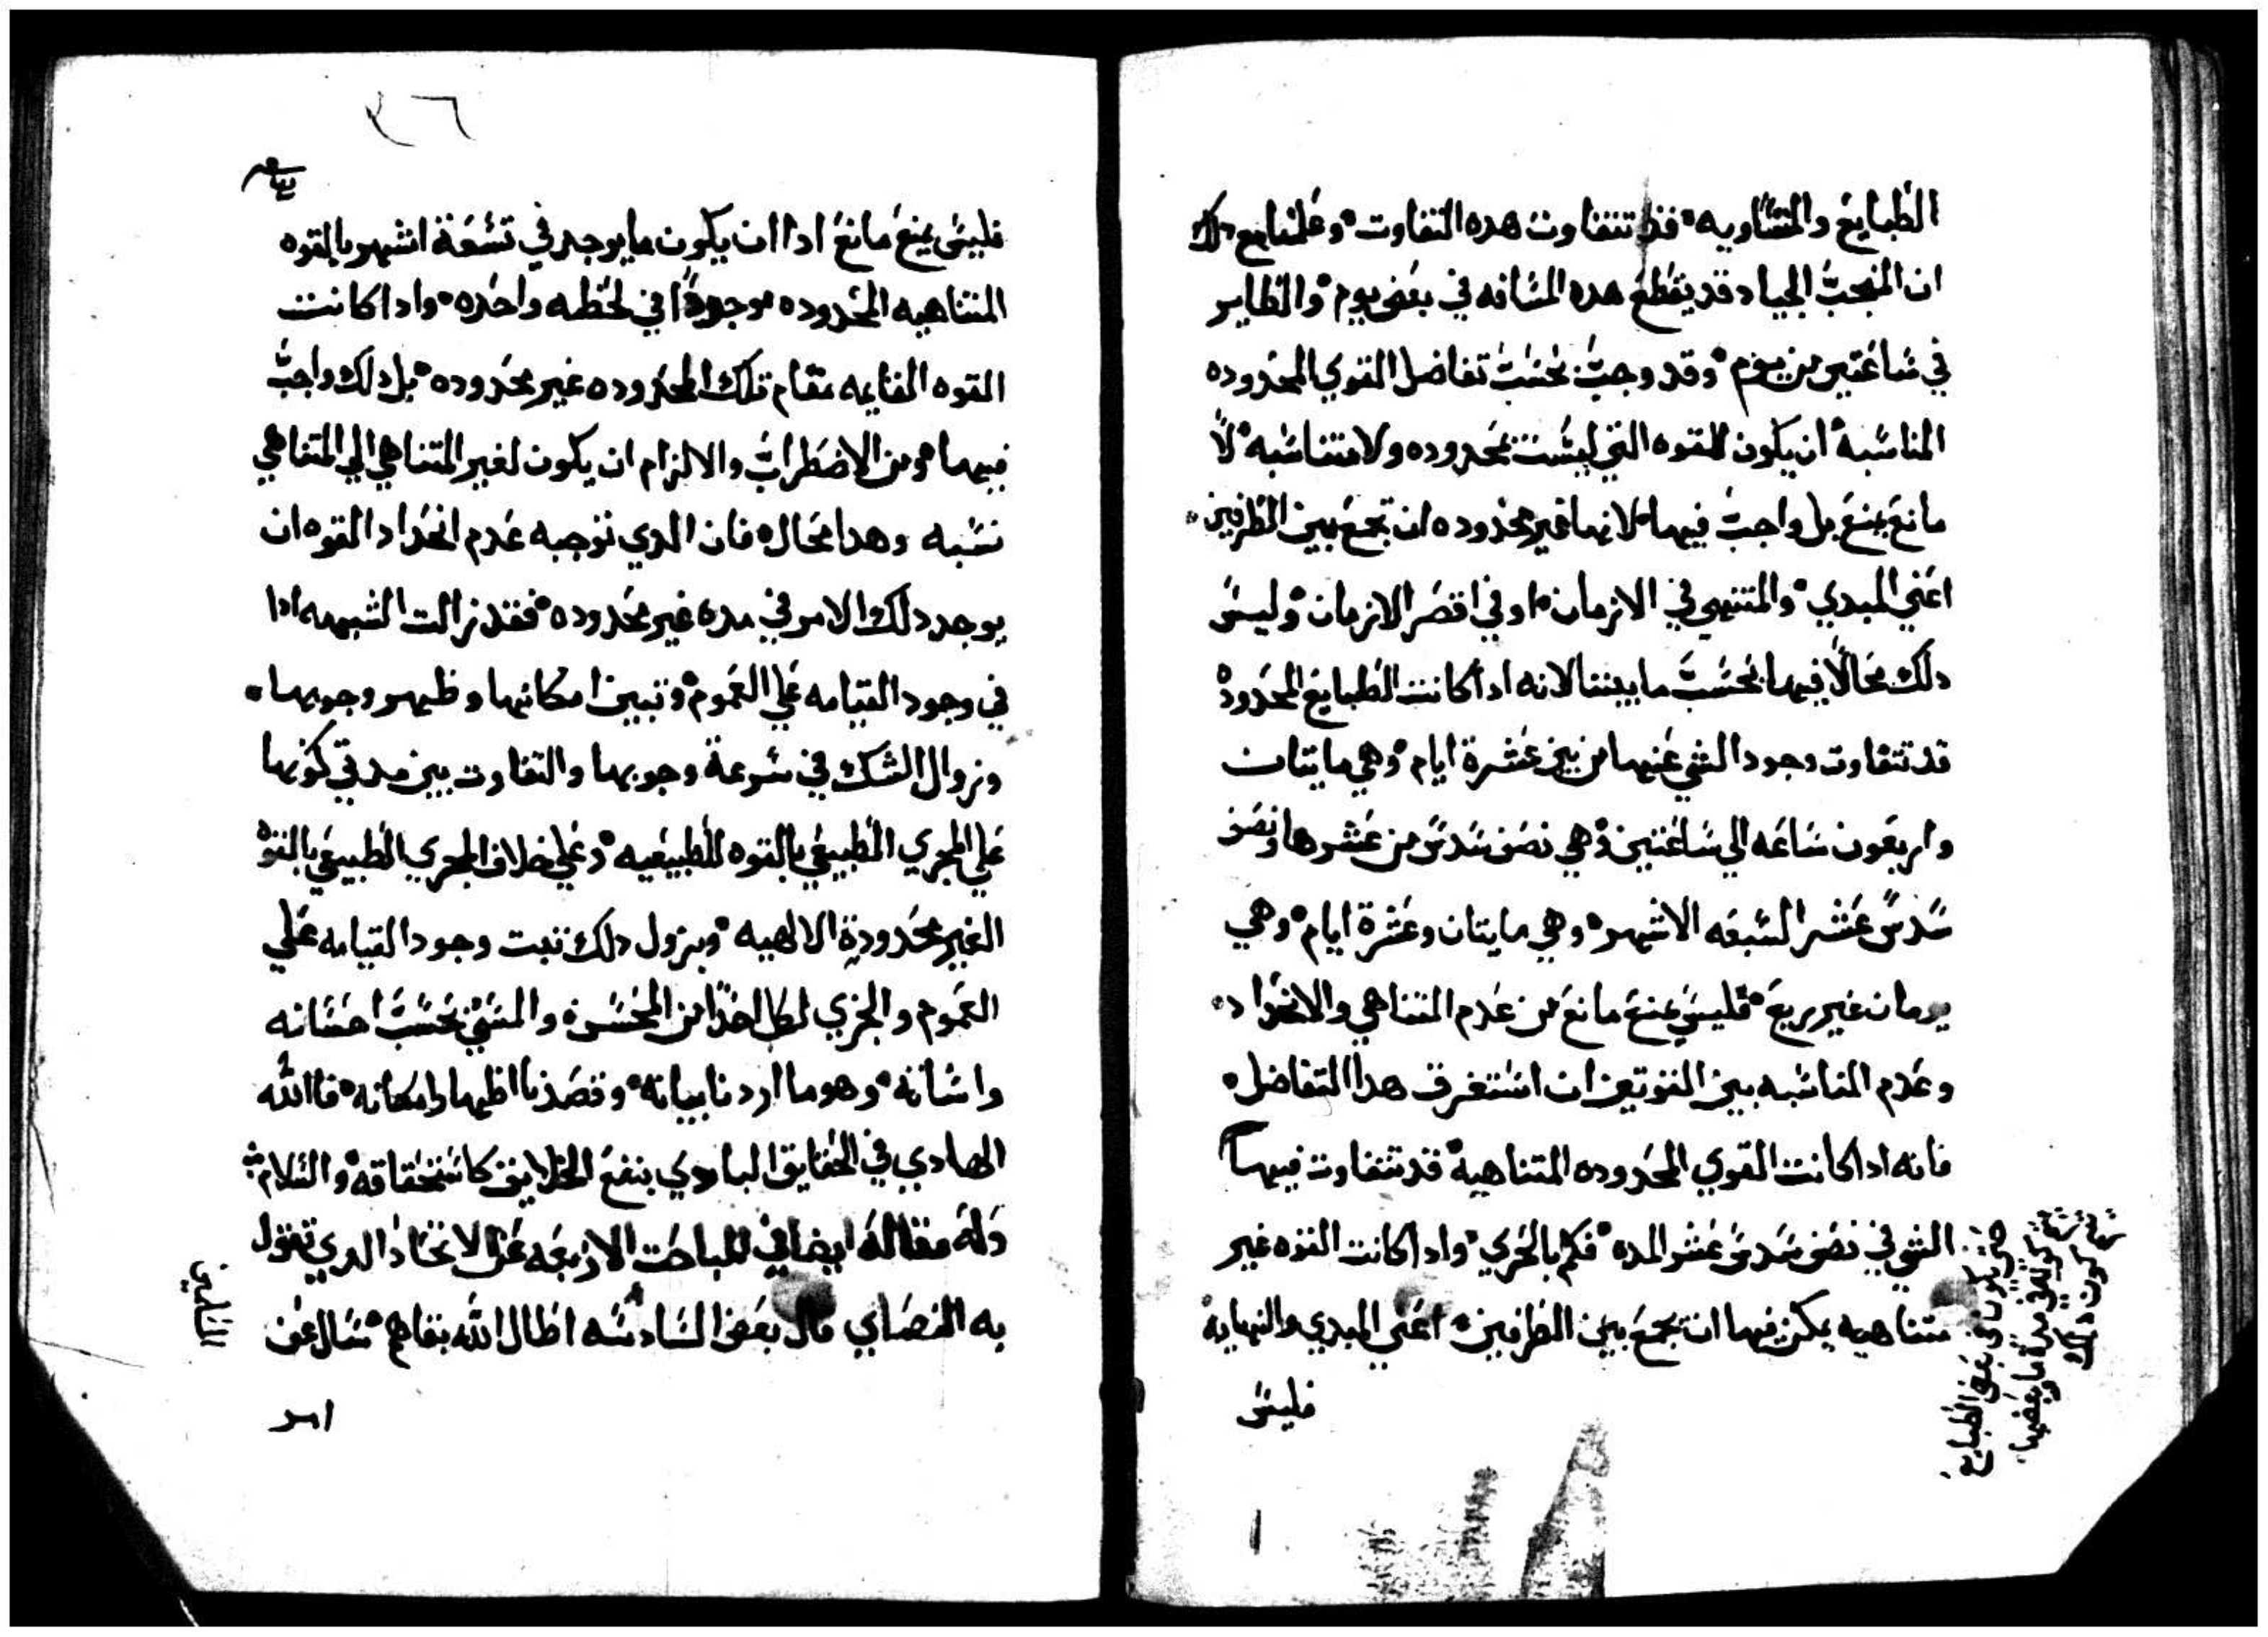 الطبايع والمتساويه فقد تتفاوت هده التفاوت وعلمنا مع دلك
ان النجب الجياد قد يقطع هده المسافه في بعض يوم والطاير
في ساعتين من يوم وقد وجب بحسب تفاضل القوي المحدوده
المناسبه ان يكون للقوه التي ليست بمحدوده ولا متناسبه لا
مانع يمنع بل واجب فيها لانها غير محدوده ان تجمع بين الطرفين
اعني المبدي والمنتهي في الازمان او في اقصر الازمان وليس
دلك محالا فيها بحسب ما بيننا لانه ادا كانت الطبايع المحدوده
قد تتفاوت وجود الشي عنها من بين عشرة ايام وهي مايتان
واربعون ساعه الي ساعتين وهي نصف سدس من عشرها ونصف
سدس عشر السبعه الاشهر وهي مايتان وعشرة ايام وهي
يومان غير ربع فليس يمنع مانع من عدم التناهي والانحداد
وعدم المناسبه بين القوتين ان استغرق هدا التفاضل
فانه ادا كانت القوي المحدوده المتناهيه قد تتفاوت فيها
الشي في نصف سدس عشر المده فكم بالحري وادا كانت القوه غير
متناهيه يمكن فيها ان تجمع بين الطرفين اعني المبدي والنهايه
فليس
٣٦
فليس يمنع مانع ادا ان يكون ما يوجد في تسعة اشهر بالقوه
المتناهيه المحدوده موجودا في لحظه واحده وادا كانت
القوه القايمه مقام تلك المحدوده غير محدوده بل دلك واجب
فيها ومن الاضطراب والالزام ان يكون لغير المتناهي الي المتناهي
نسبه وهدا محال فان الدي توجبه عدم انحداد القوه ان
يوجد دلك الامر في مده غير محدوده فقد زالت الشبهه ادا
في وجود القيامه علي العموم وتبين امكانها وظهر وجوبها
وزوال الشك في سرعة وجوبها والتفاوت بين مدتي كونها
علي المجري الطبيعي بالقوه الطبيعيه وعلي خلاف المجري الطبيعي بالقوه
الغير محدودة الالهيه وبزول دلك تبت وجود القيامه علي
العموم والجزي لكل احدا من المحسن والمسي بحسب احسانه
واساته وهو ما اردنا بيانه وقصدنا اظهار امكانه فالله
الهادي في الحقايق البادي بنفع الخلايق كاستحقاقه والسلام
وله مقاله ايضا في المباحت الاربعه عن الاتحاد الدي تقول
به النصاري قال بعض السادسه اطال الله بقاهم سال عن
احد